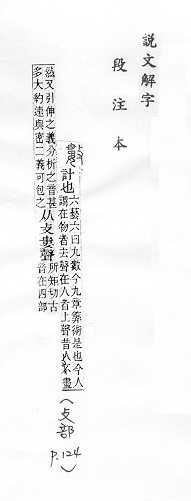 說文解字
段注本
數計也六藝六曰九數今九章筭術是也今人
謂在物者去聲在人者上聲昔人不盡
(攴部 P.124)
然又引伸之義分析之音甚
多大約速與密二義可包之
从攴婁聲所矩切古
音在四部